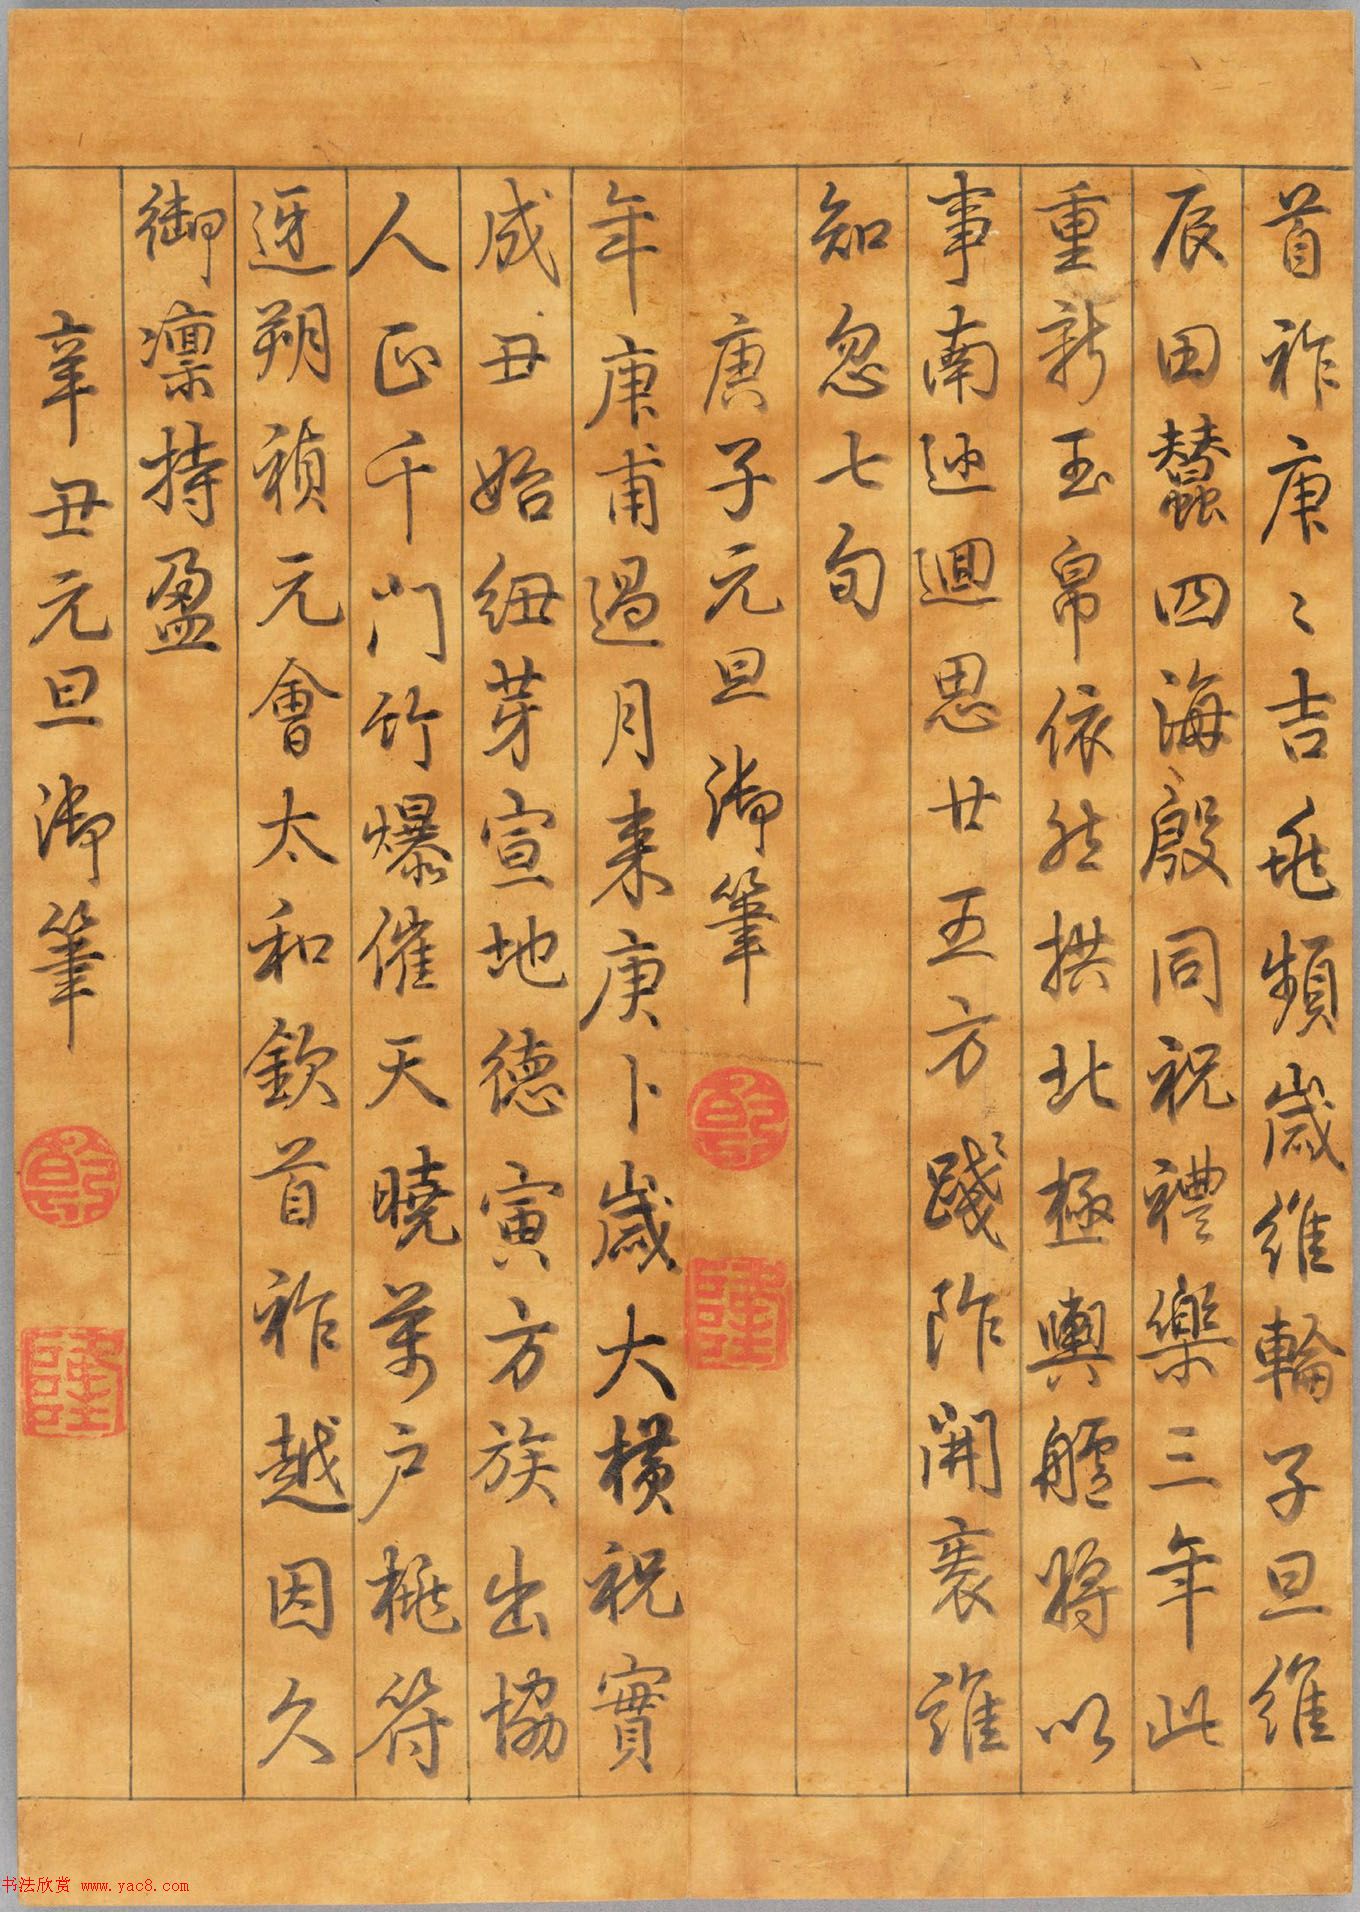 首祚庚〻吉兆頻歲維輪子旦維
辰田蠶四海殷同祝禮樂三年此
重新玉帛依然拱北極輿艫將以
事南廵迴思廿五方踐阼開袠誰
知忽七旬
庚子元旦御筆
乾
隆
年庚甫過月来庚卜歲大橫祝實
成丑始紐芽宣地德寅方族出協
人正千門竹爆催天曉萬戶桃符
迓朔禎元會太和欽首祚越因久
御凛持盈
辛丑元旦御筆
乾
隆
书法欣赏 www.yac8.com